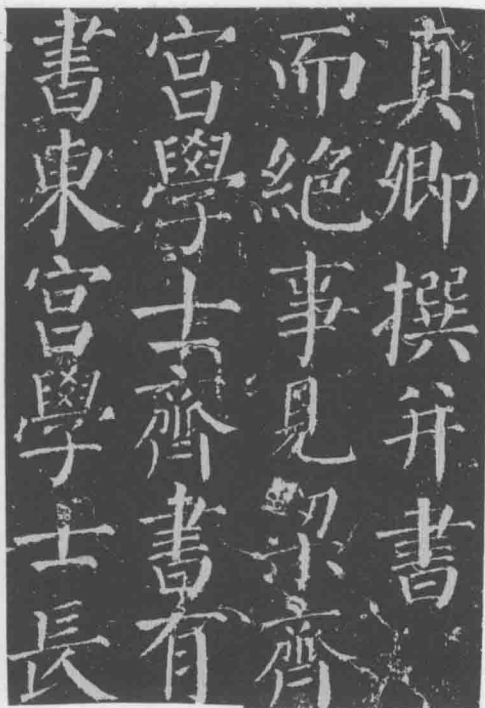 真卿撰并書
而絕事見梁齊
宮學士齊書有
書東宮學士長